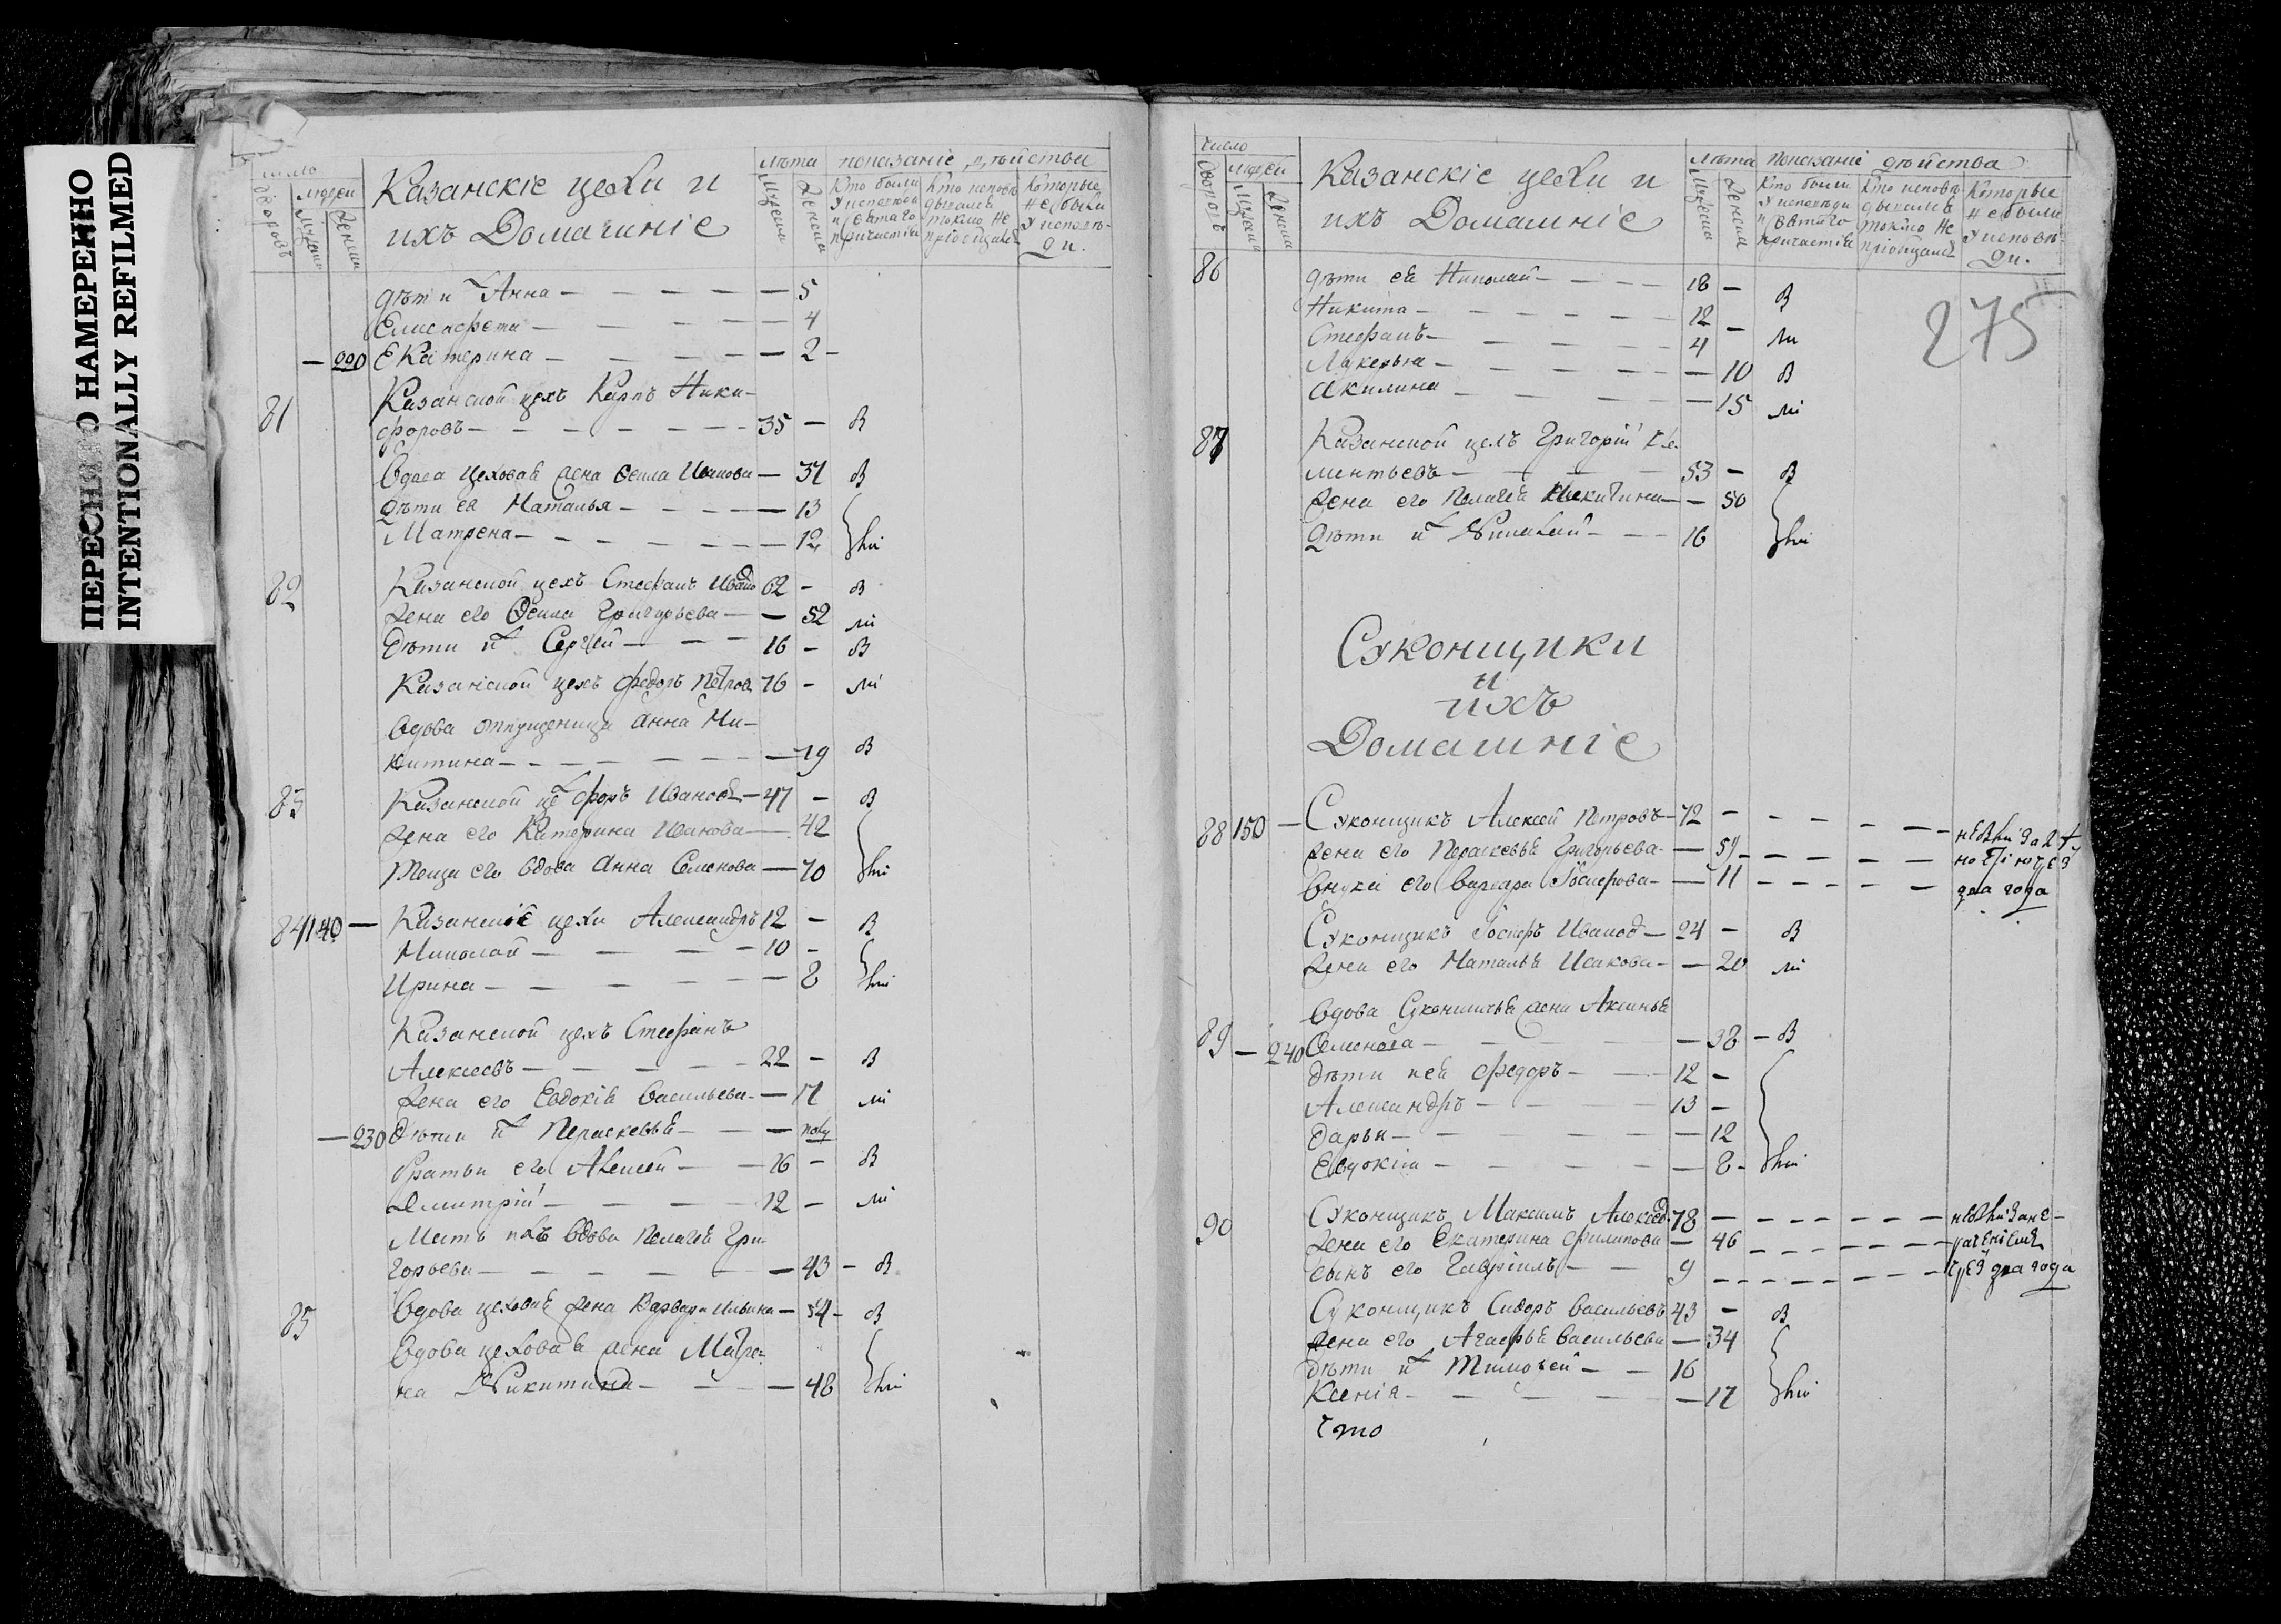 ПЕРЕСНЯТО НАМЕРЕННО
INTENTIONALLY REFILMED
число
людей
дворовъ
мужеска
женска
Казанскіе цехи и
ихъ Домашніе
лѣта
показаніе дѣйства
мужеска
женска
Кто были
у исповѣди
и святаго
причастія
Кто исповѣ
дывался
токмо не
пріобщался
Которые
не были
у исповѣ-
ди.
дѣти их Анна — 5
Елисафета — 4
— 220 Екатерина — 2 —
81 Казанской цехъ Карпъ Ники-
форовъ — 35 — В
Вдова цеховая жена Ѳекла Иванова — 37 В
дѣти ея Наталья — 13
Матрена — 12
82 Казанской цехъ Стефанъ Ивано 62 — В
жена его Ѳекла Григорьева — 52
дѣти их Сергѣй — 16 — В
Казанской цехъ Федоръ Петров 76 —
Вдова отпущеница Анна Ни-
китина — 79 В
83 Казанской це Ивановъ — 47 — В
жена его Катерина Иванова — 42
теща его вдова Анна Семенова — 70
84 140 — Казанскіе цехи Александръ 12 — В
Николай — 10 —
Ирина — 8
Казанской цехъ Стефанъ
Алексеевъ — 22 — В
жена его Евдокія Васильева — 17
— 230 дѣти их Параскевья —
Братья его Алексей — 16 — В
Дмитрій — 12 —
Мать ихъ вдова Пелагея Гри
горьева — 43 — В
85 Вдова цеховая жена Варвара Ильина — 54 — В
Вдова цеховая жена Матре-
на Никитина — 48
число
людей
дворовъ
мужеска
женска
Казанскіе цехи и
ихъ Домашніе
лѣта
показаніе дѣйства
мужеска
женска
Кто были
у исповѣди
и святаго
причастія
Кто исповѣ
дывался
токмо не
пріобщался
Которые
не были
у исповѣ-
ди.
275
86 дѣти ея Николай — 18 — В
Никита — 12 —
Стефанъ — 4
Лукерья — 10 В
Акилина — 15
87 Казанской цехъ Григорій Кле
ментьевъ — 53 — В
жена его Пелагея Никитина — 50
дѣти их Николай — 16
Суконщики
и
ихъ
Домашніе
88 150 — Суконщикъ Алексей Петровъ — 72 —
жена его Параскевья Григорьева — 59 —
внука его Варвара Іосифова — 11 —
два года
Суконщикъ Іосифъ Иванов — 24 — В
жена его Наталья Исакова — 20
Вдова Суконничья жена Аксинья
89 — 240 Семенова — 38 — В
дѣти ней Федоръ — 12 —
Александръ — 13 —
Дарья — 12
Евдокіа — 8 —
90 Суконщикъ Максимъ Алексеев 78 —
жена его Екатерина Филипова — 46 —
сынъ его Гавріилъ — 9 —
чрез два года
Суконщикъ Сидоръ Васильевъ 43 — В
жена его Агафья Васильева — 34
дѣти их Тимофей — 16
Ксенія — 17
Что